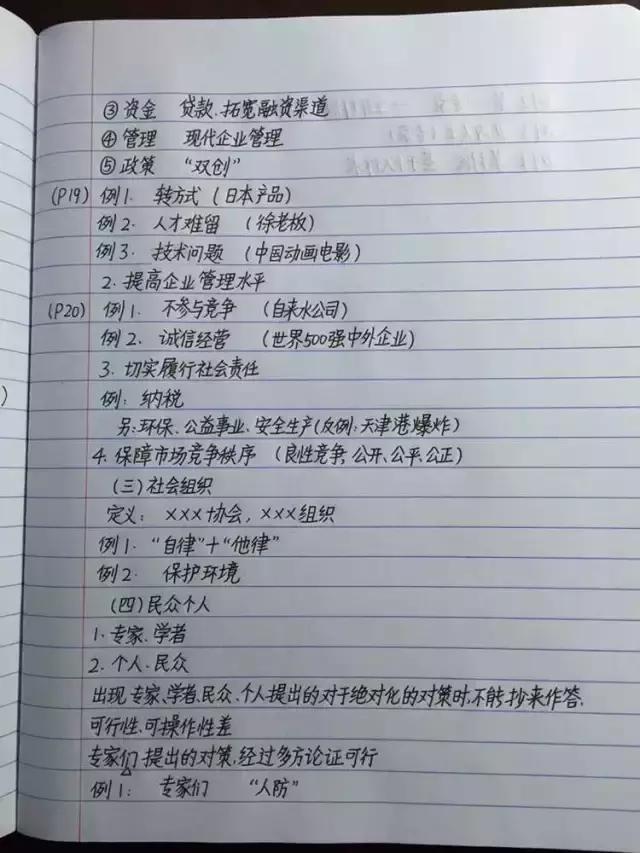 ③资金 贷款、拓宽融资渠道
④管理 现代企业管理
⑤政策 “双创”
(P19) 例1. 转方式(日本产品)
例2. 人才难留 (徐老板)
例3. 技术问题 (中国动画电影)
2.提高企业管理水平
(P20) 例1. 不参与竞争 (自来水公司)
例2. 诚信经营 (世界500强中外企业)
3.切实履行社会责任
例: 纳税
另:环保、公益事业、安全生产(反例:天津港爆炸)
4.保障市场竞争秩序 (良性竞争,公开、公平、公正)
(三)社会组织
定义: ×××协会, ×××组织
例1. “自律”+“他律”
例2. 保护环境
(四)民众个人
1.专家、学者
2.个人、民众
出现专家、学者、民众、个人提出的对于绝对化的对策时,不能抄来作答,
可行性、可操作性差
专家们提出的对策,经过多方论证可行
例1: 专家们 “人防”